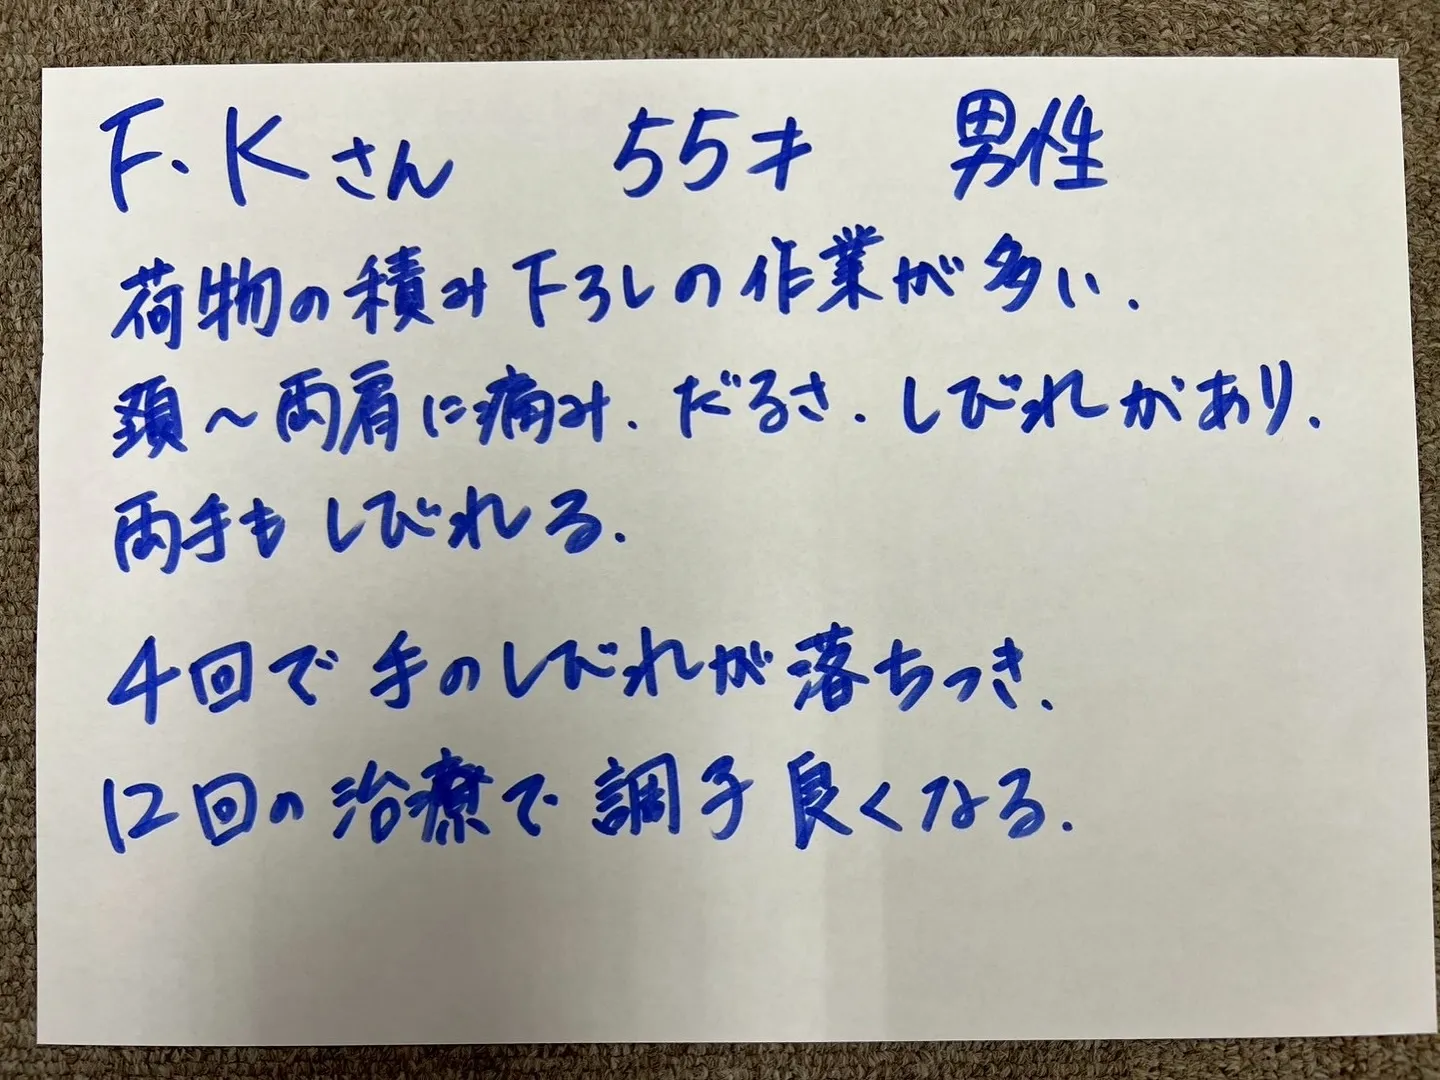 F.Kさん 55才 男性
荷物の積み下ろしの作業が多い.
頚〜両肩に痛み.だるさ.しびれがあり.
両手もしびれる.
4回で手のしびれが落ちつき.
12回の治療で調子良くなる.